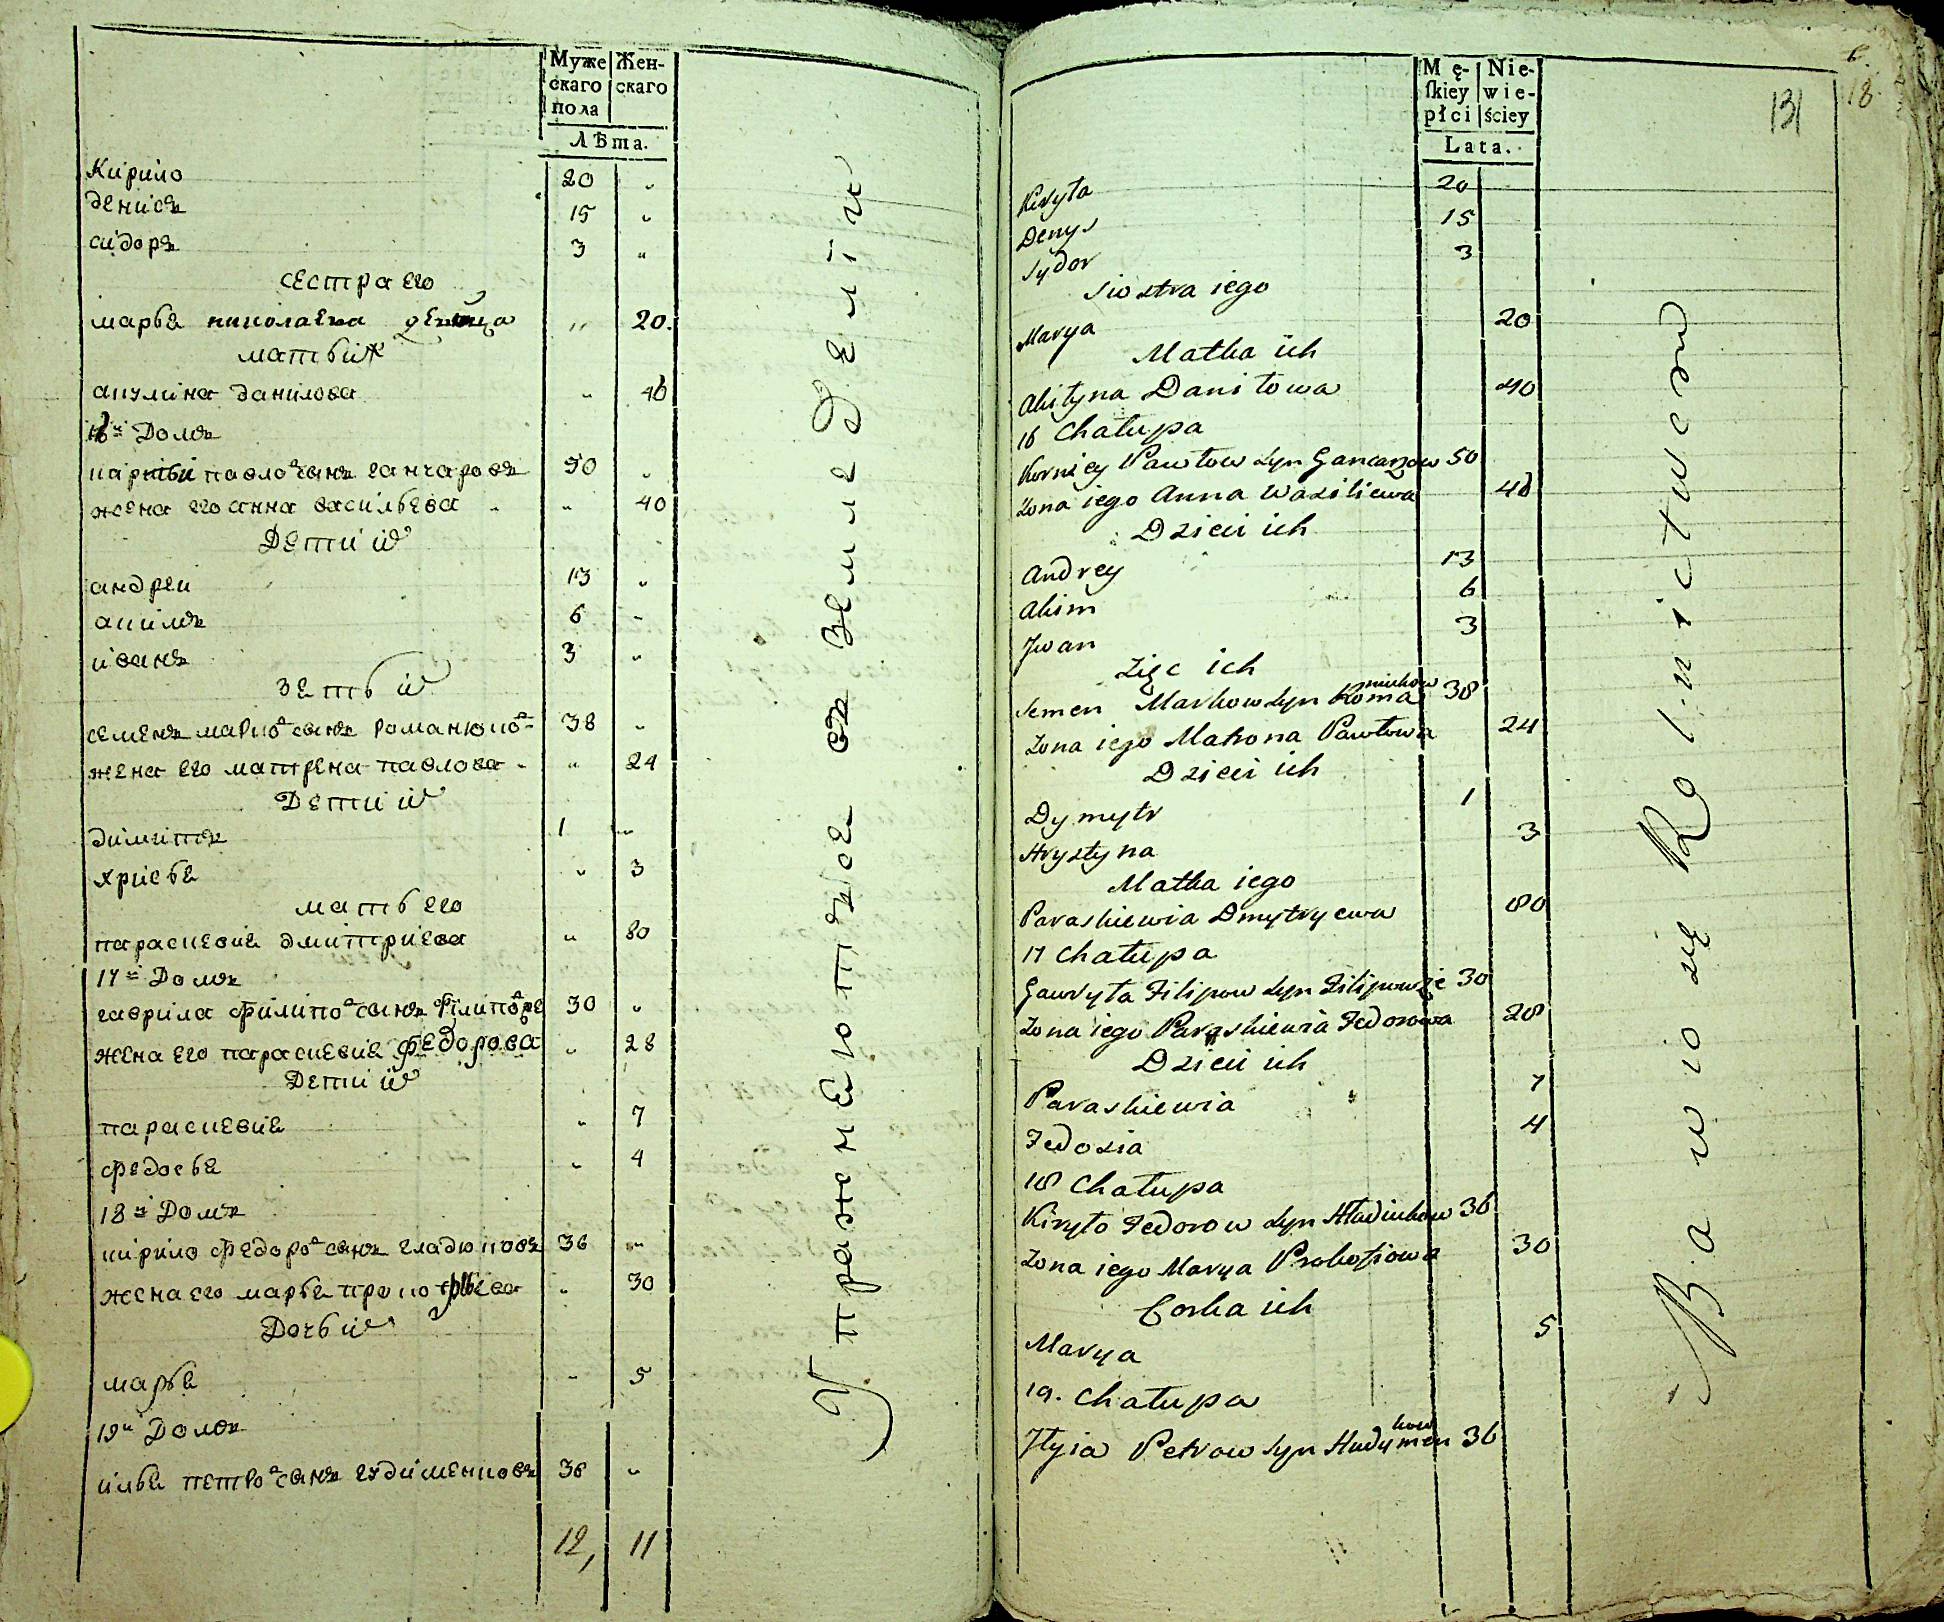 Муже Жен-
скаго скаго
пола
Лѣта.
Кирило 20 "
денисъ 15 "
сидоръ 3 "
сестра его
марья николаева девица " 20.
мать их
акулина данилова " 40
16й Домъ
карнѣй павло в сынъ ганчаровъ 50 "
жена его анна васильева " 40
Дети их
андреи 13 "
акимъ 6 "
иванъ 3 "
зеть их
семенъ марко в сынъ романюко в 38 "
жена его матрена павлова " 24
Дети их
димитръ 1 "
христя " 3
мать его
параскевия дмитриева " 80
17й Домъ
гаврила филипо в сынъ 30 "
жена его параскевия федорова " 28
Дети их
параскевия " 7
федосья " 4
18й Домъ
кирило федоро в сынъ гладюковъ 36 "
жена его марья прокофьева " 30
Дочь их
марья " 5
19й Домъ
илья петро в сынъ гудименковъ 36 "
12, 11
Упражнеются въ земледелїи
6.
18.
131
Mę- Nie-
ſkiey wie-
płci ściey
Lata.
Kiryła 20
Denys 15
Sydor 3
Siostra iego
Marya 20
Matka ich
Akilyna Daniłowa 40
16 Chałupa
Korniey Pawłow syn Gancarzow 50
Zona iego Anna Wasiliewa 40
Dzieci ich
Andrey 13
Akim 6
Jwan 3
Zięc ich
Semen Markow syn Romaniukow 38
Zona iego Matrona Pawłowa 24
Dzieci ich
Dymytr 1
Hrystyna 3
Matka iego
Paraskiewia Dmytryewa 80
17 Chałupa
Gawryła Filipow syn 30
Zona iego Paraskiewia Fedorowa 28
Dzieci ich
Paraskiewia 7
Fedosia 4
18 Chałupa
Kiryło Fedorow syn Hładiukow 36
Zona iego Marya Prokofiowa 30
Corka ich
Marya 5
19. Chałupa
Jlyia Petrow syn Hudymenkow 36
Bawio się Rolnictwem